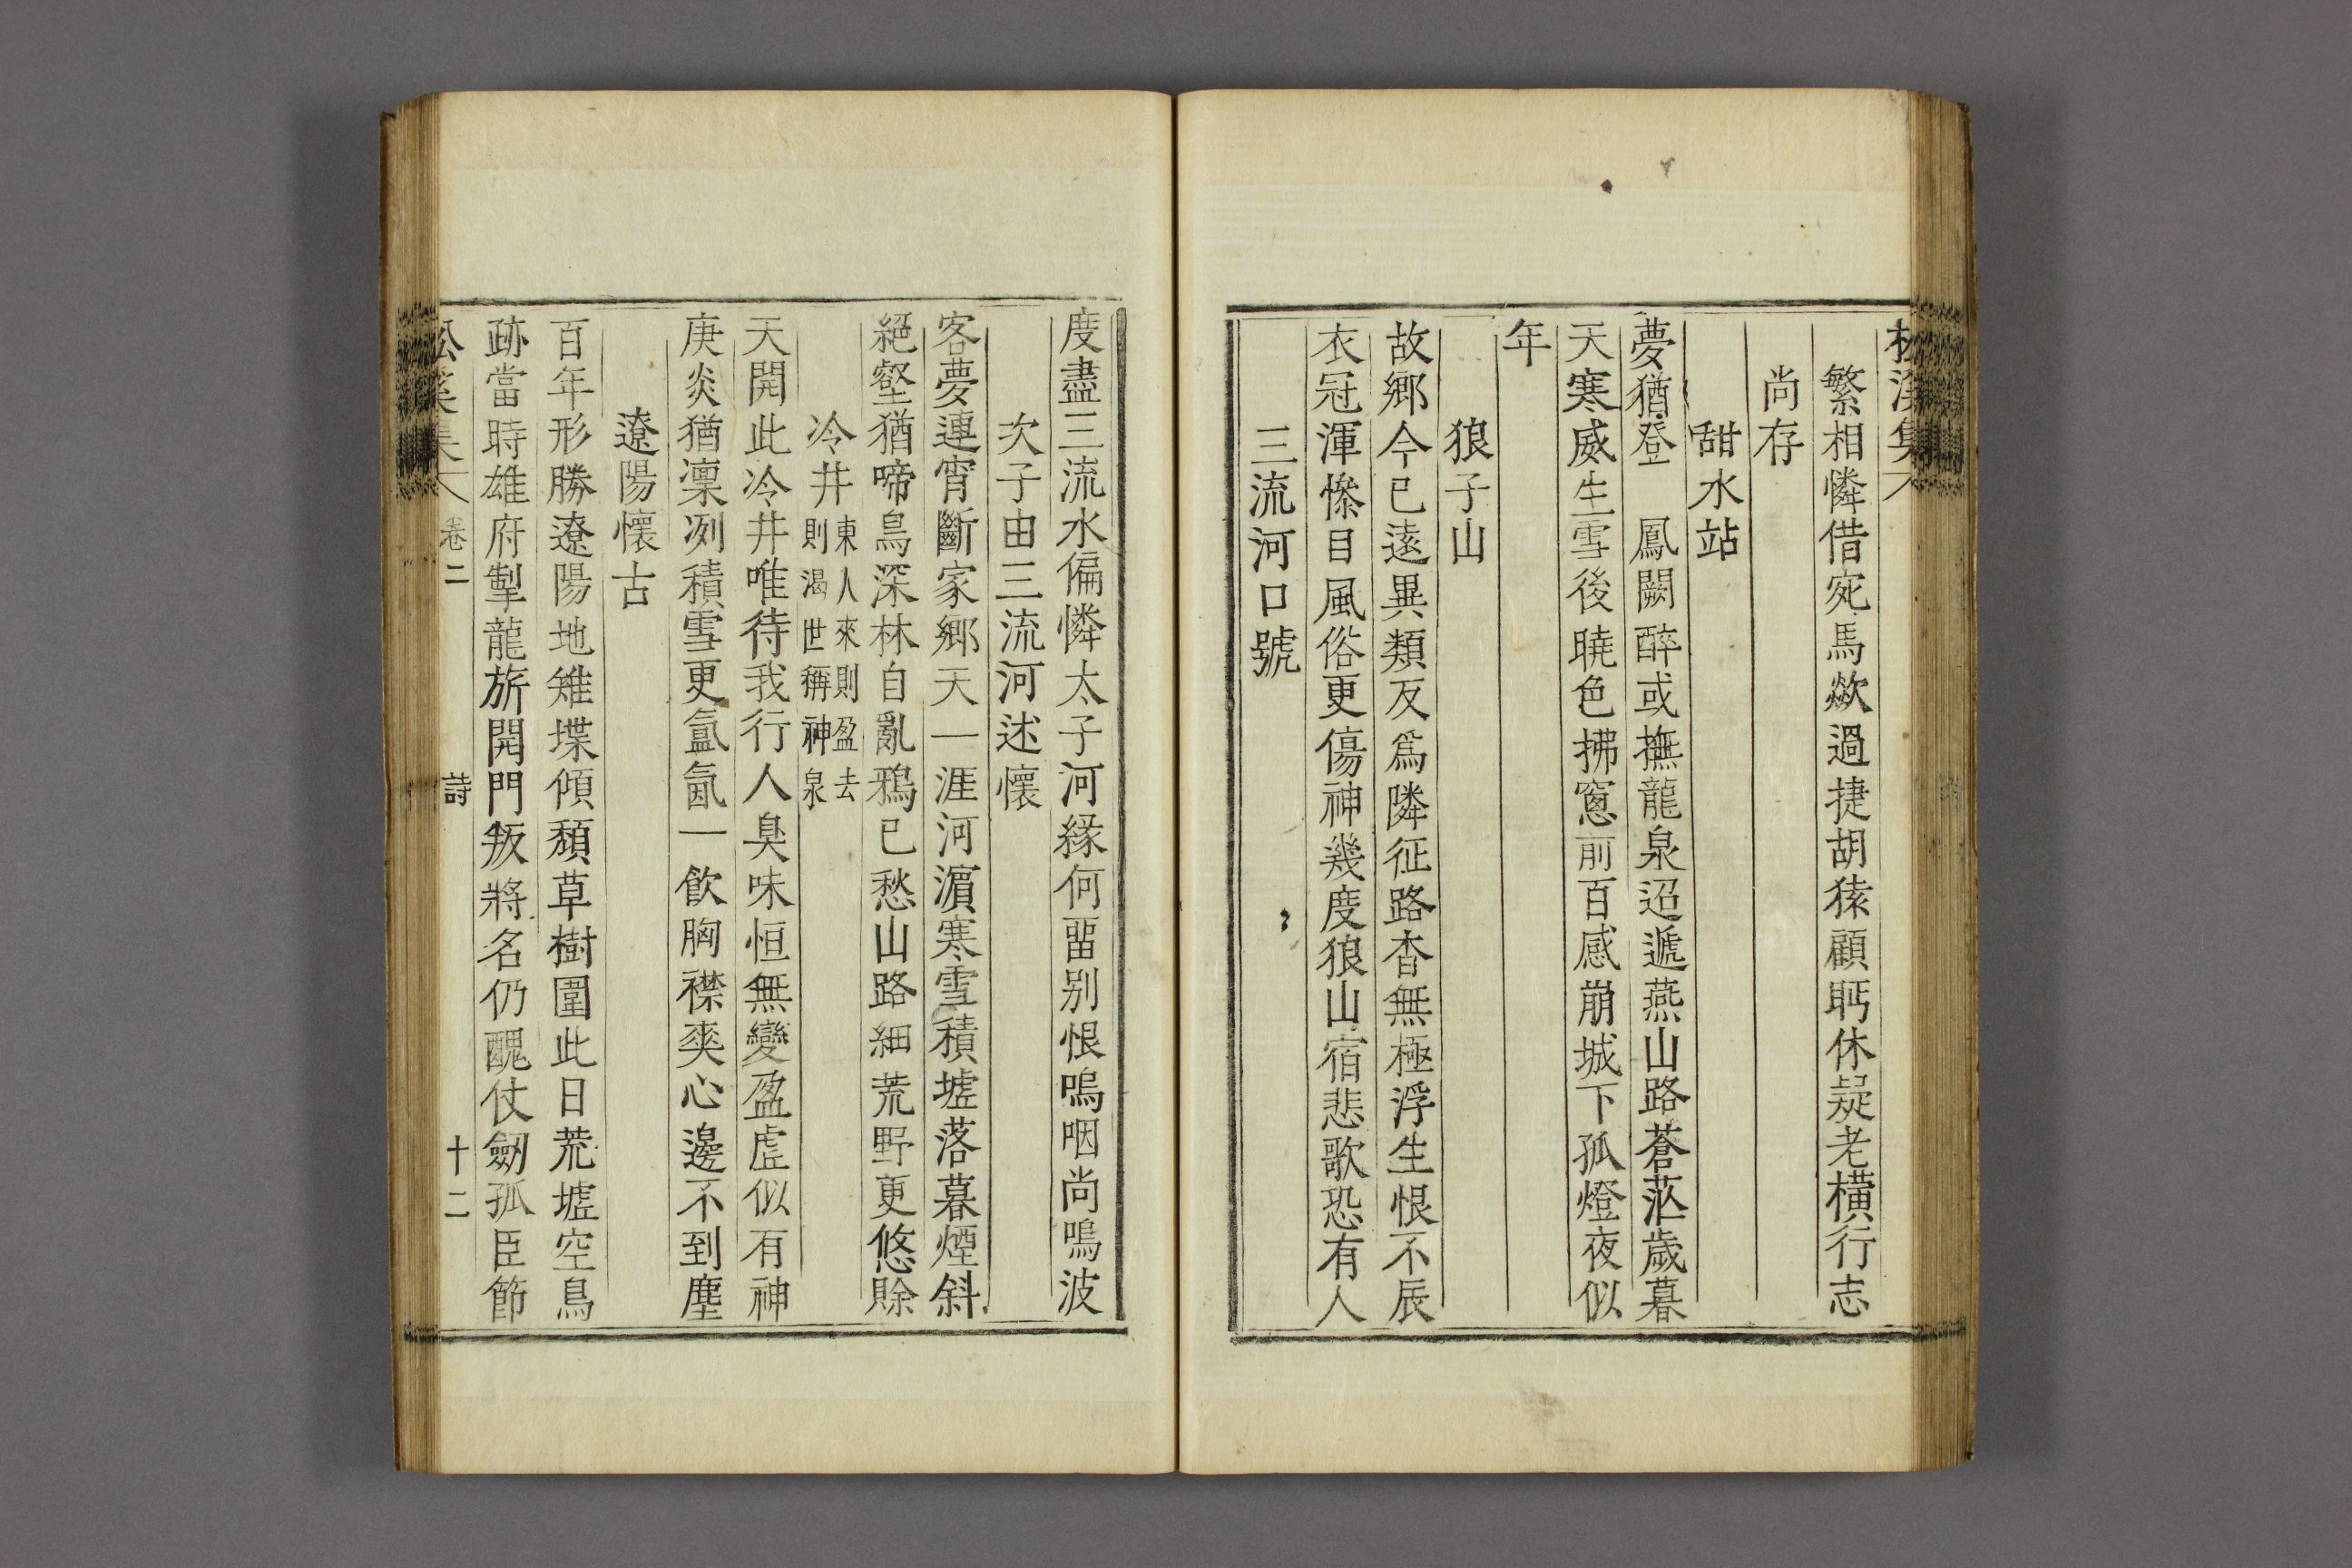 松溪集
繁相憐借宛馬歘過捷胡猿顧眄休疑老橫行志
尚存
甜水站
夢猶登　鳳闕醉或撫龍泉迢遞燕山路蒼茫歲暮
天寒威生雪後曉色拂窻前百感崩城下孤燈夜似
年
狼子山
故鄉今已遠異類反爲隣征路杳無極浮生恨不辰
衣冠渾慘目風俗更傷神幾度狼山宿悲歌恐有人
三流河口號
度盡三流水偏憐太子河緣何畱别恨嗚咽尚嗚波
次子由三流河述懷
客夢連宵斷家鄉天一涯河濵寒雪積墟落暮煙斜
絕壑猶啼鳥深林自亂鴉已愁山路細荒野更悠賒
冷井東人來則盈去則渴世稱神泉
天開此冷井唯待我行人臭味恒無變盈虛似有神
庚炎猶凜冽積雪更氳氤一飮胸襟爽心邊不到塵
遼陽懷古
百年形勝遼陽地雉堞傾頹草樹圍此日荒墟空鳥
跡當時雄府掣龍旂開門叛將名仍醜仗劒孤臣節
松溪集　卷二　詩　十二